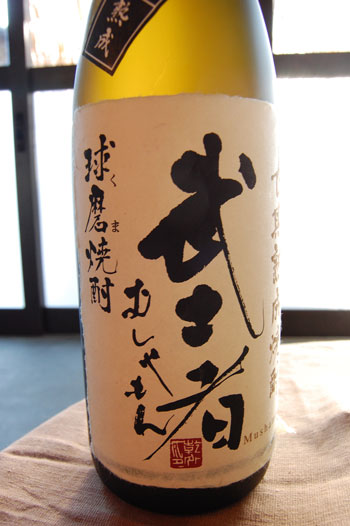 熟成
武士者
むしゃもん
球磨焼酎
くま
Musha